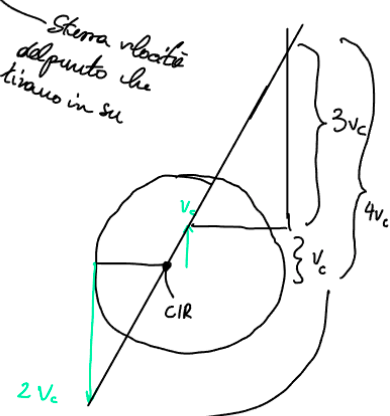 Stessa velocità
del punto che
tirano in su
3vc
4vc
vc
vc
CIR
2 Vc